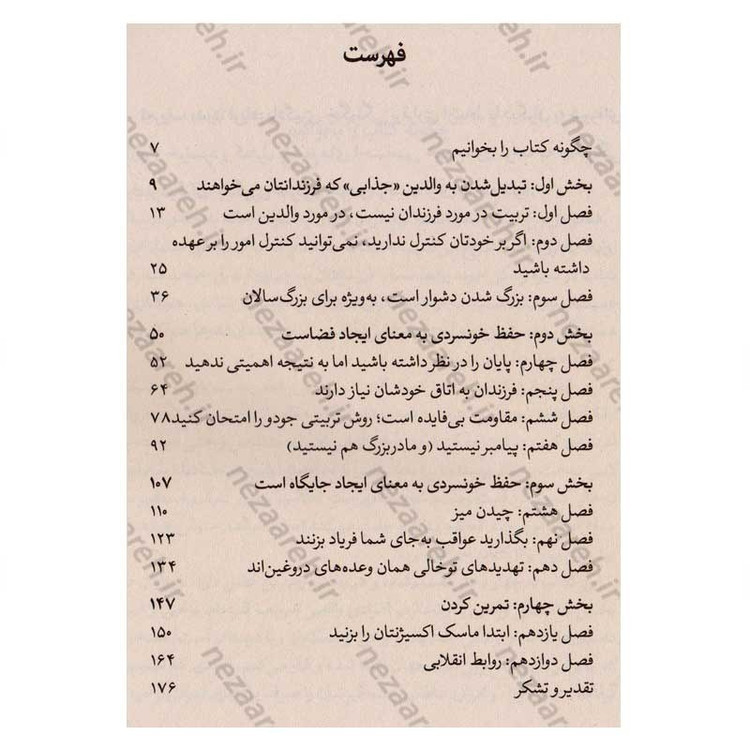 فهرست
چگونه کتاب را بخوانیم ۷
بخش اول: تبدیل‌شدن به والدین «جذابی» که فرزندانتان می‌خواهند ۹
فصل اول: تربیت در مورد فرزندان نیست، در مورد والدین است ۱۳
فصل دوم: اگر بر خودتان کنترل ندارید، نمی‌توانید کنترل امور را بر عهده
داشته باشید ۲۵
فصل سوم: بزرگ شدن دشوار است، به‌ویژه برای بزرگ‌سالان ۳۶
بخش دوم: حفظ خونسردی به معنای ایجاد فضاست ۵۰
فصل چهارم: پایان را در نظر داشته باشید اما به نتیجه اهمیتی ندهید ۵۲
فصل پنجم: فرزندان به اتاق خودشان نیاز دارند ۶۴
فصل ششم: مقاومت بی‌فایده است؛ روش تربیتی جودو را امتحان کنید ۷۸
فصل هفتم: پیامبر نیستید (و مادربزرگ هم نیستید) ۹۲
بخش سوم: حفظ خونسردی به معنای ایجاد جایگاه است ۱۰۷
فصل هشتم: چیدن میز ۱۱۰
فصل نهم: بگذارید عواقب به‌جای شما فریاد بزنند ۱۲۳
فصل دهم: تهدیدهای توخالی همان وعده‌های دروغین‌اند ۱۳۴
بخش چهارم: تمرین کردن ۱۴۷
فصل یازدهم: ابتدا ماسک اکسیژنتان را بزنید ۱۵۰
فصل دوازدهم: روابط انقلابی ۱۶۴
تقدیر و تشکر ۱۷۶
nezaareh.ir